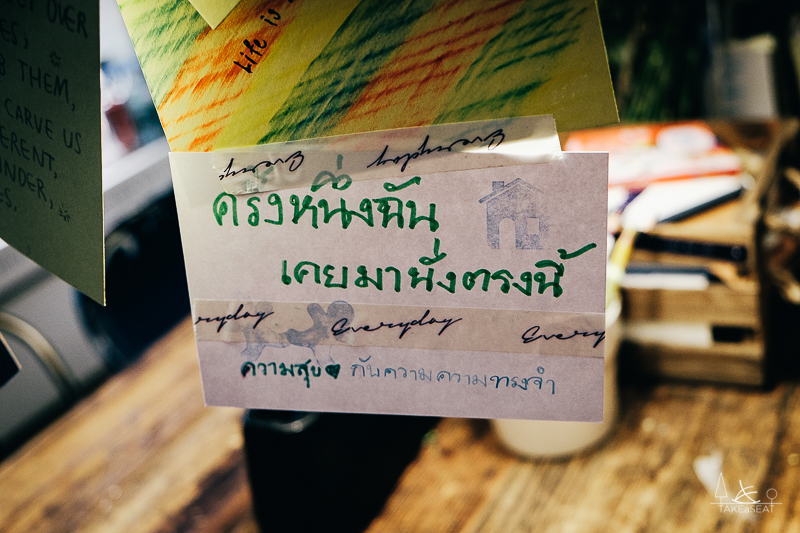 T OVER
ES,
B THEM,
CARVE US
FERENT,
INDER,
ES.
Life is
Everyday Everyday
ครั้งหนึ่งฉัน
เคยมานั่งตรงนี้
eryday Everyday Every
ความสุข♥ กับความความทรงจำ
TAKEaSEAT